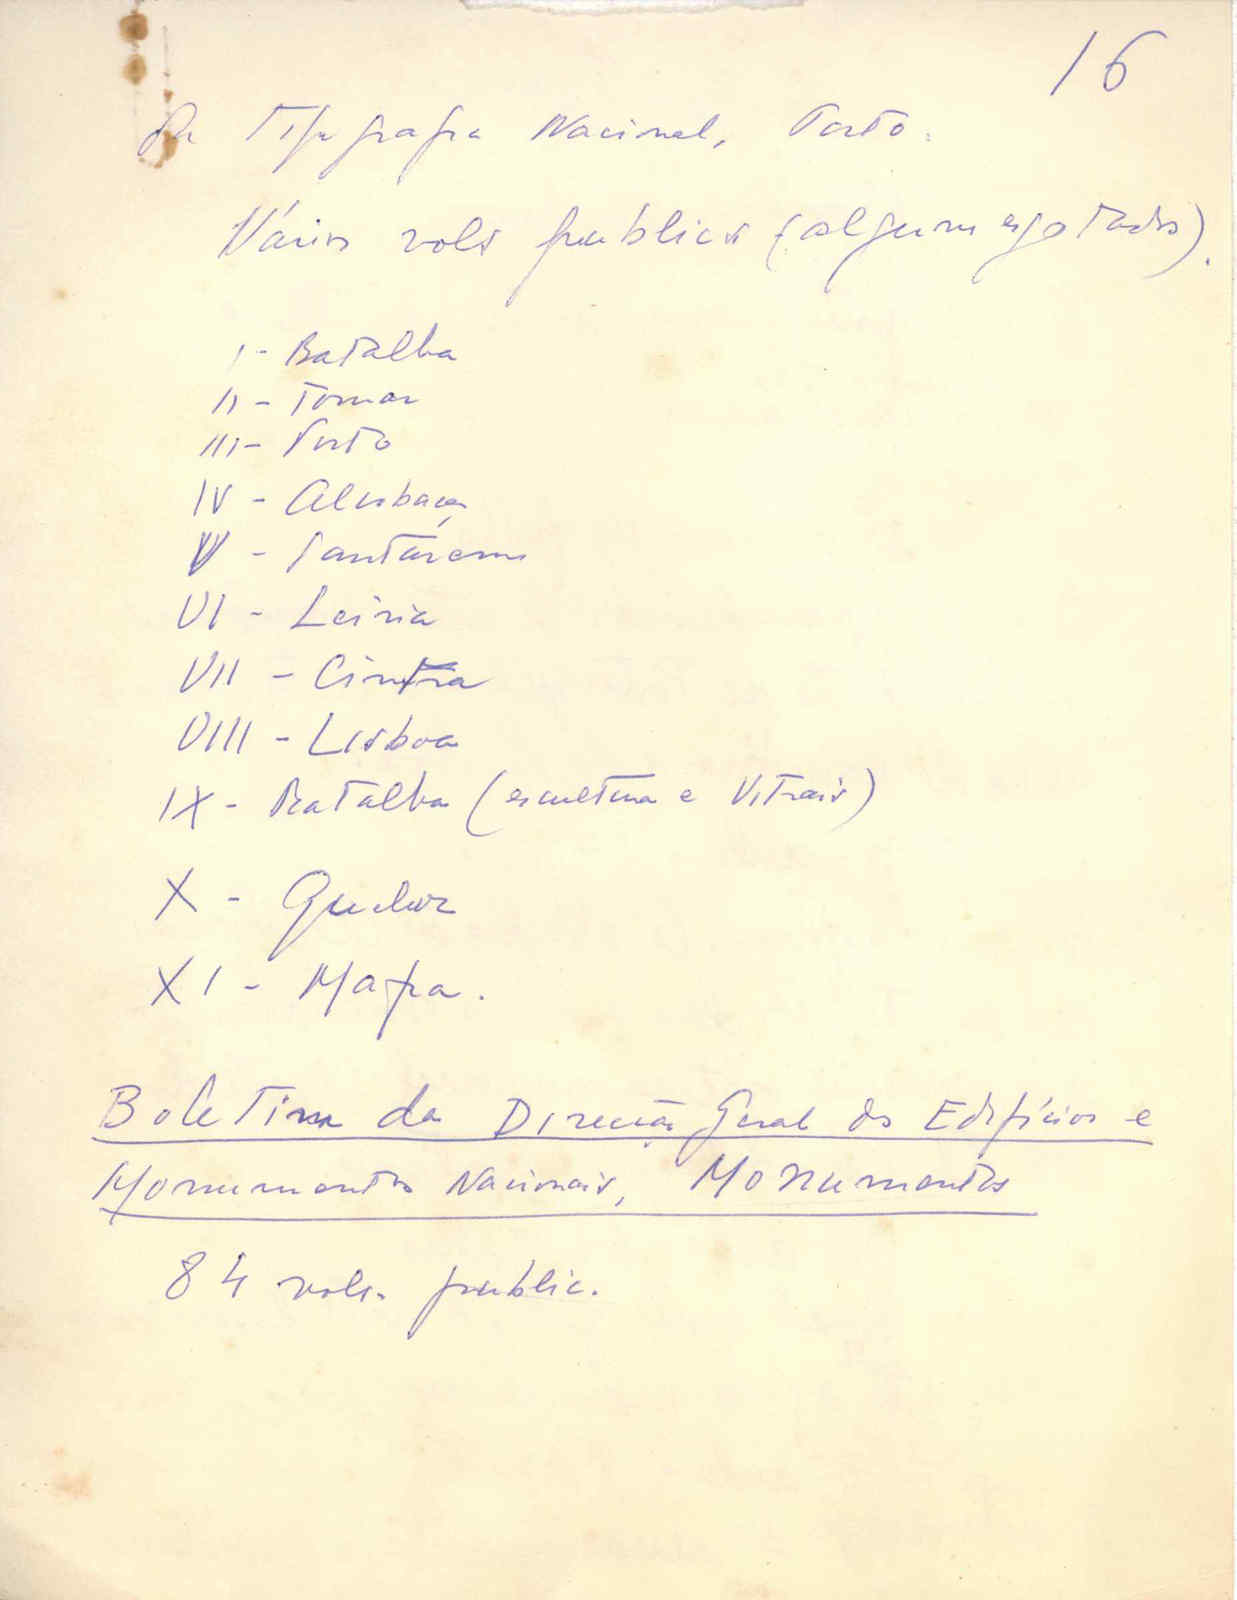 16
da Tipografia Nacional, Porto.
Vários vols publics (algum esgotados).
I - Batalha
II - Tomar
III - Porto
IV - Alcobaça
V - Santárem
VI - Leiria
VII - Cintra
VIII - Lisboa
IX - Batalha (escultura e Vitrais)
X - Queluz
XI - Mafra.
Boletim da Direcção Geral dos Edifícios e
Monumentos Nacionais, Monumentos
84 vols. public.